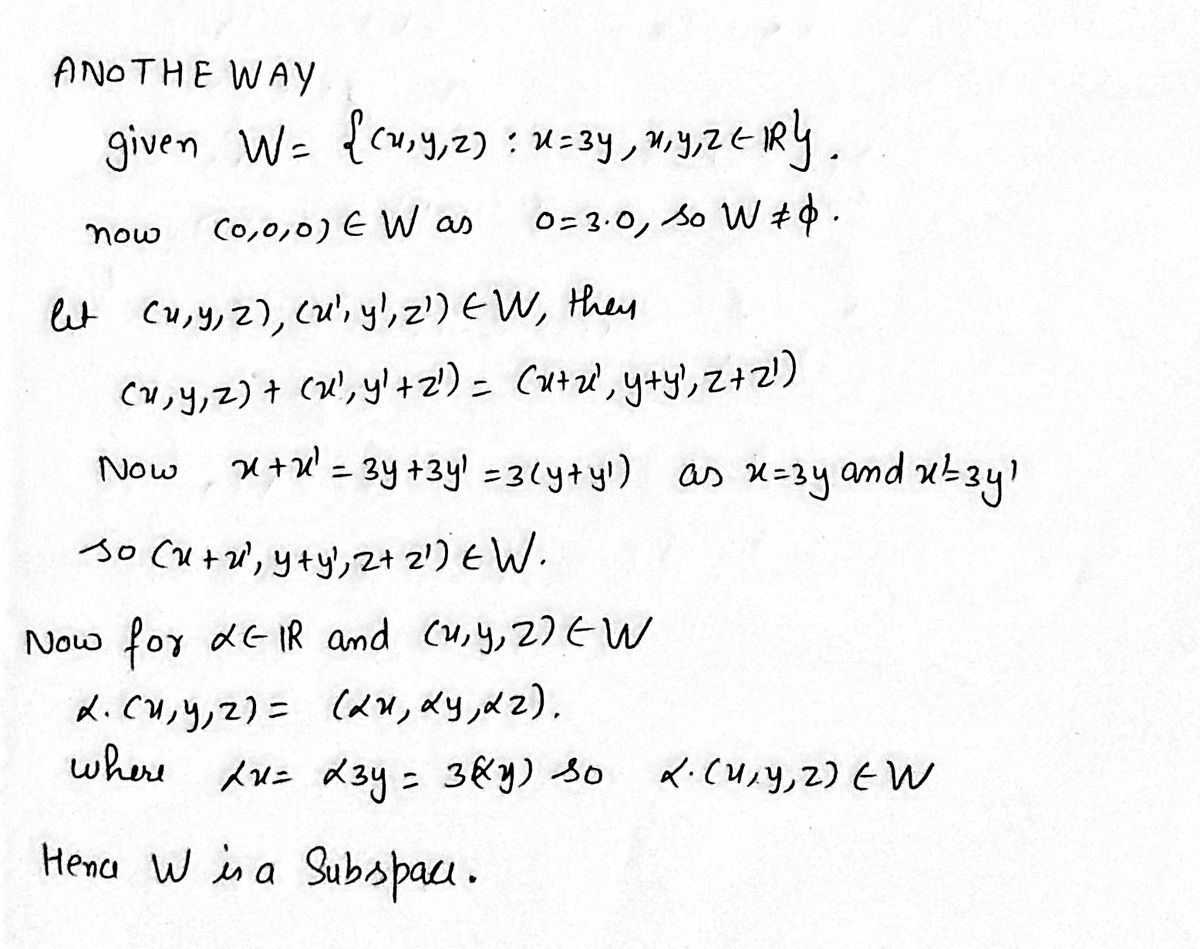 ANOTHE WAY
given W = {(x,y,z) : x=3y, x,y,z ∈ IR}.
now (0,0,0) ∈ W as 0=3·0, so W ≠ ϕ.
let (x,y,z), (x',y',z') ∈ W, then
(x,y,z) + (x',y'+z') = (x+x', y+y', z+z')
Now x+x' = 3y+3y' = 3(y+y') as x=3y and x'=3y'
so (x+x', y+y', z+z') ∈ W.
Now for α ∈ IR and (x,y,z) ∈ W
α.(x,y,z) = (αx, αy, αz).
where αx = α3y = 3(αy) so α.(x,y,z) ∈ W
Hence W is a Subspace.